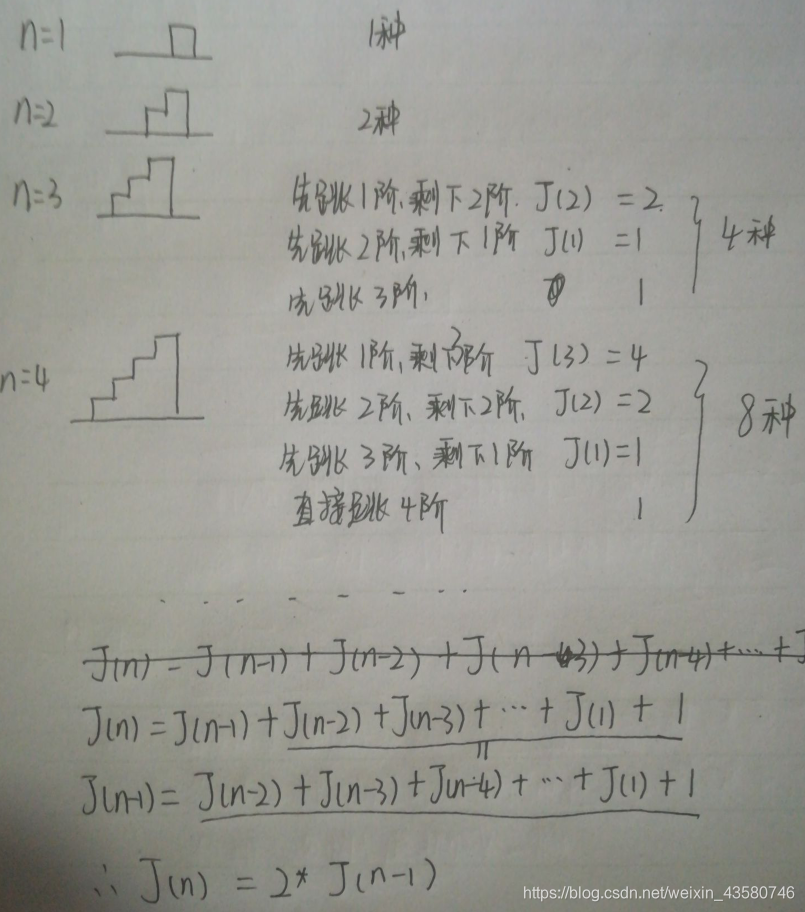 n=1 1种
n=2 2种
n=3 先跳1阶,剩下2阶. J(2) = 2.
先跳2阶,剩下1阶 J(1) =1
4种
先跳3阶, 1
n=4 先跳1阶,剩下3阶 J(3) = 4
先跳2阶,剩下2阶, J(2) =2
8种
先跳3阶、剩下1阶 J(1)=1
直接跳4阶 1
. . . - - - . .
J(n) = J(n-1) + J(n-2) + J(n-3) + J(n-4) + ... + J
J(n) = J(n-1) + J(n-2) + J(n-3) + ... + J(1) + 1
=
J(n-1) = J(n-2) + J(n-3) + J(n-4) + ... + J(1) + 1
∴ J(n) = 2* J(n-1)
https://blog.csdn.net/weixin_43580746